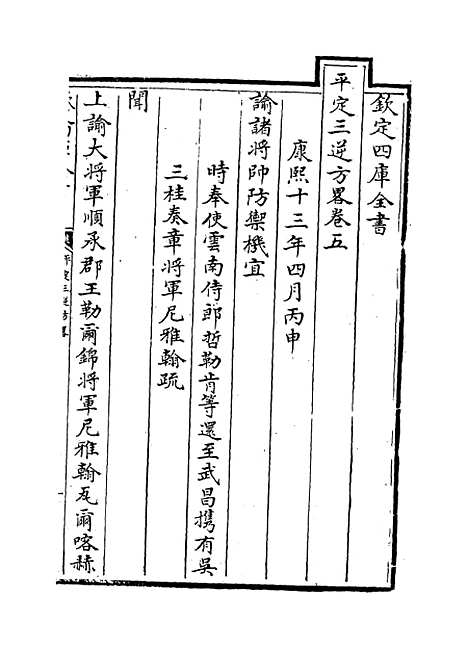 欽定四庫全書
平定三逆方畧卷五
康熙十三年四月丙申
諭諸將帥防禦機宜
時奉使雲南侍郎哲勒肯等還至武昌攜有吳
三桂奏章將軍尼雅翰疏
聞
上諭大將軍順承郡王勒爾錦將軍尼雅翰瓦爾喀赫
平定三逆方畧